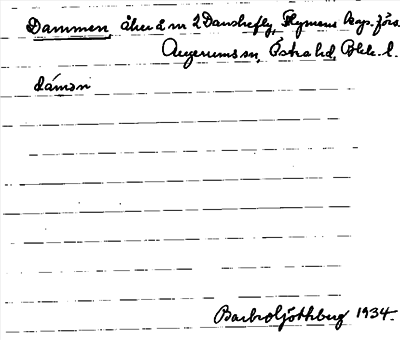 Dammen åker 2 m 2 Danskefly, Flymens kaps. förs.
Augerums sn, Östra hd, Blek. l.
dámǝn
Barbro Göthberg 1934.